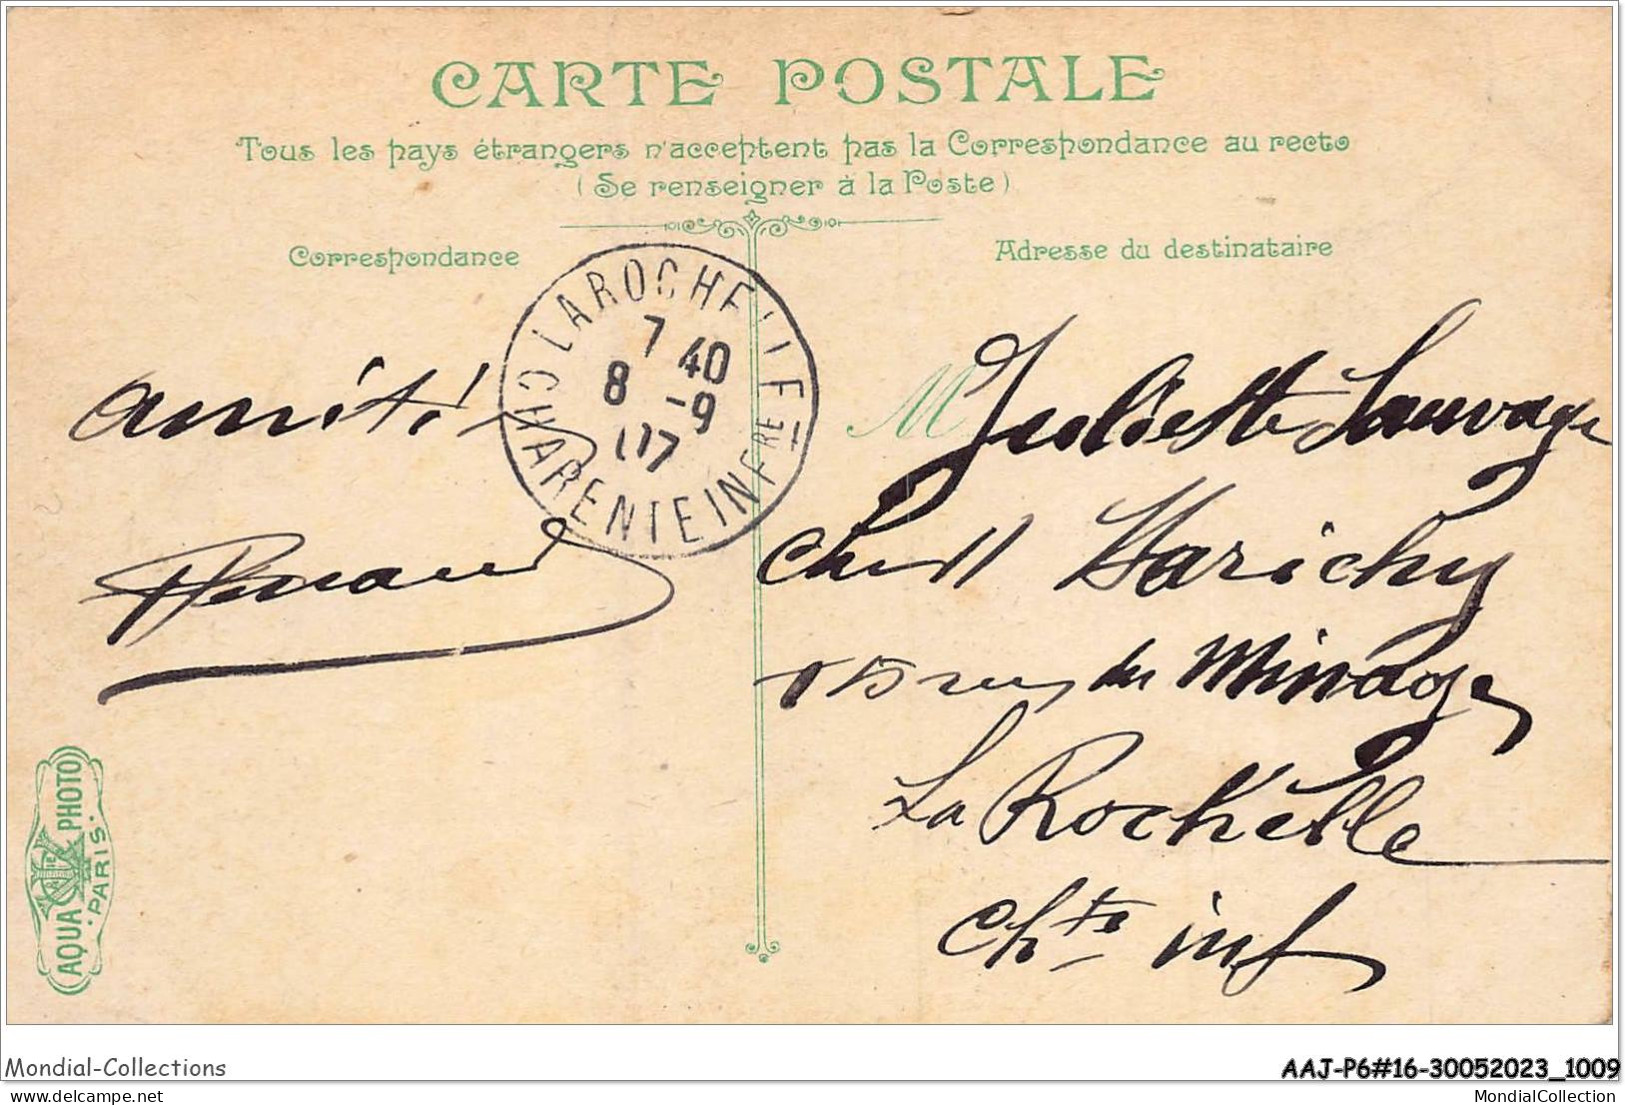 CARTE POSTALE
Tous les pays étrangers n'acceptent pas la Correspondance au recto
(Se renseigner à la Poste)
Correspondance
Adresse du destinataire
LA ROCHELLE
7 40
8 -9
07
CHARENTE INFRE
amitié
M Juliette Sauvage
Harichy
15 rue du Minage
La Rochelle
Chte inf
AQUA PHOTO
PARIS
Mondial-Collections
mondial-collection.delcampe.net
AAJ-P6#16-30052023_1009
MondialCollection